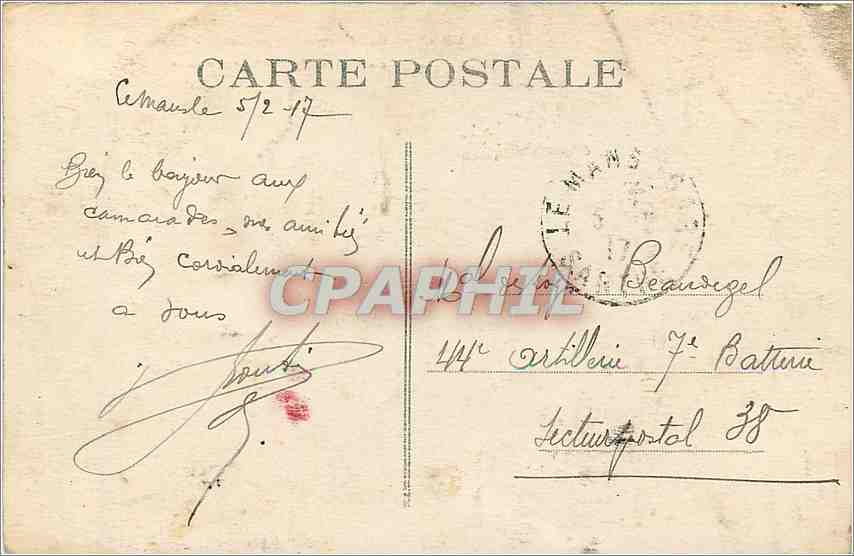 CARTE POSTALE
Le Mans le 5/2-17
Bien le bonjour aux
camarades, mes amitiés
et Bien cordialement
a vous
LE MANS
SARTHE
17
Mal des logis
44e Artillerie 7e Batterie
Secteur postal 38
CPAPHIL